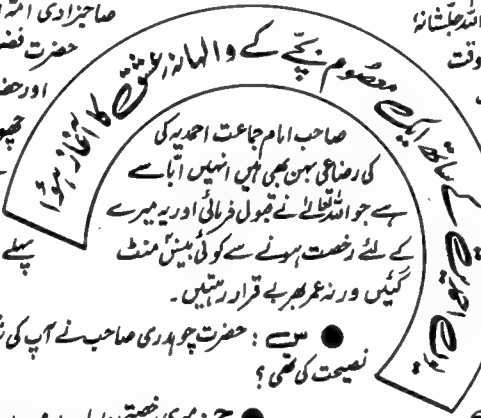 صاحبزادی
حضرت
اور
پہلے
اللہ جلّشانہٗ
وقت
کے ساتھ ایک معصوم بچّے کے والہانہ عشق کا آغاز ہوا
صاحب امام جماعت احمدیہ کی
کی رضاعی بہن بھی ہیں انہیں ابّا سے
ہے جو اللہ تعالےٰ نے قبول فرمائی اور یہ میرے
کے لئے رخصت ہونے سے کوئی بیس منٹ
گئیں ورنہ عمر بھر بے قرار رہتیں۔
● س : حضرت چوہدری صاحب نے آپ کی
نصیحت کی تھی ؟